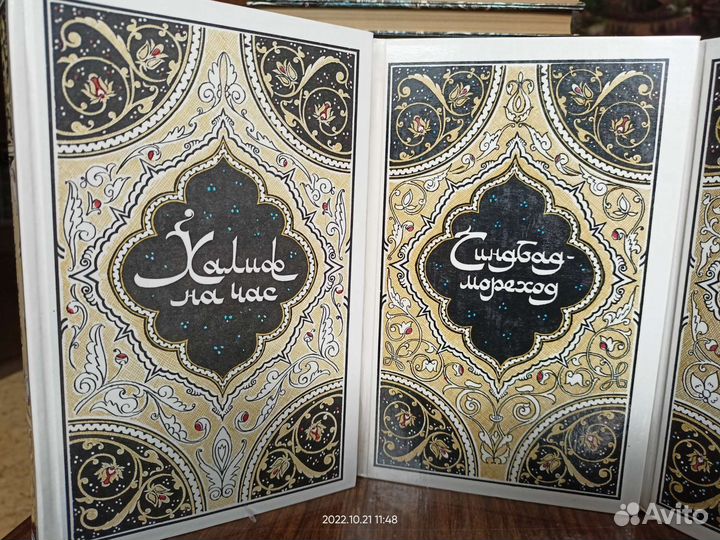 Халиф
на час
Синдбад-
мореход
2022.10.21 11:48
Avito